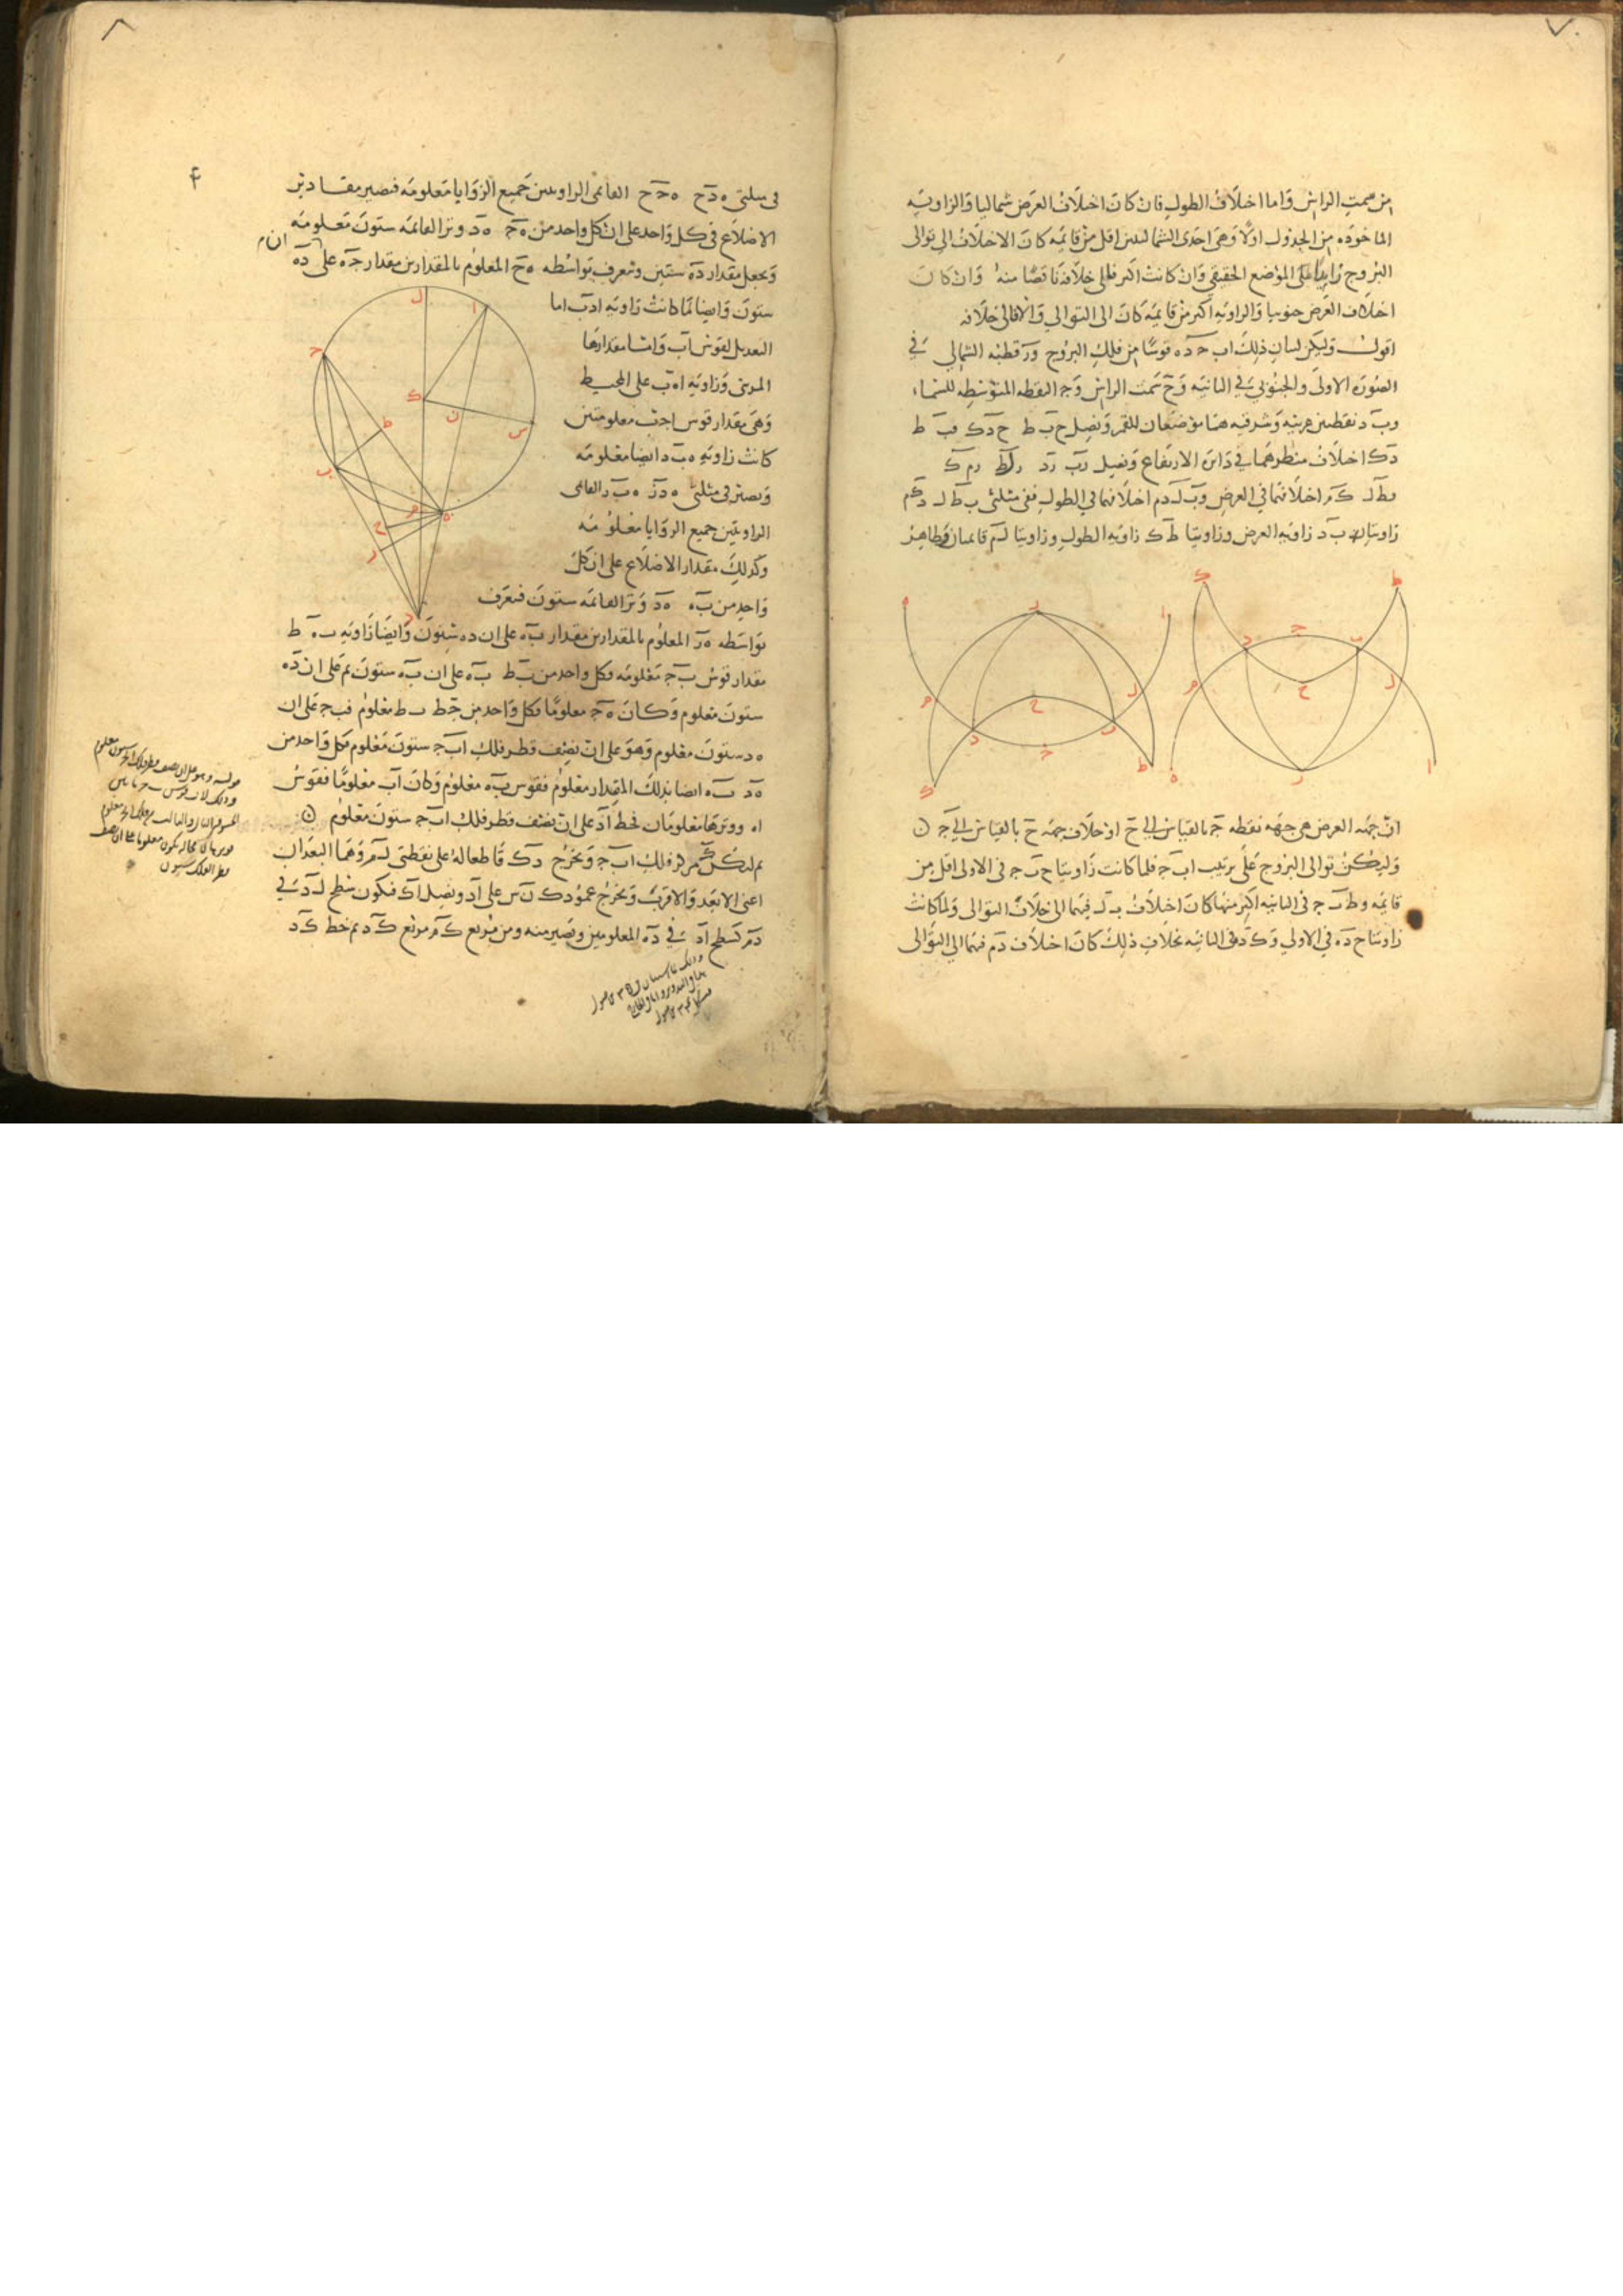 من سمت الراس واما اختلاف الطول فان كان اختلاف العرض شماليا والزاويه
الماخوذه من الجدول اولا وهى احدى الشماليتين اقل من قايمه كان الاختلاف الى توالى
البروج زايدا على الموضع الحقيقى وان كانت اكبر فالى خلافه ناقصا منه وان كان
اختلاف العرض جنوبيا والزاويه اكبر من قايمه كان الى التوالى والا فالى خلافه
اقول وليكن لبيان ذلك اب ح د ه قوسا من فلك البروج ور قطبه الشمالى فى
الصوره الاولى والجنوبى فى الثانيه وح سمت الراس وج النقطه المتوسطه للسماء
وب د نقطتين غربيه وشرقيه هما موضعان للقمر ونصل ح ب ط ح د ك فب ط
د ك اختلاف منظرهما فى دايره الارتفاع ونصل رب رد رلط رم ك
فط ل ك م اختلافهما فى العرض وب ل د م اختلافهما فى الطول ففى مثلثى ب ط ل د ك م
زاويتا ب د زاويه العرض وزاويتا ط ك زاويه الطول وزاويتا ل م قايمتان وظاهر
ان جهه العرض هى جهه نقطه ج بالقياس الى ح او خلاف جهه ح بالقياس الى ج
وليكن توالى البروج على ترتيب اب ج فلما كانت زاويتا ح ب ج فى الاولى اقل من
قايمه وط ب ج فى الثانيه اكبر منها كان اختلاف ب ل فيهما الى خلاف التوالى ولما كانت
زاويتا ح د ه فى الاولى وك د ه فى الثانيه بخلاف ذلك كان اختلاف د م فيهما الى التوالى
فى مثلثى ه د ح ه ح ج القائمى الزاويتين جميع الزوايا معلومه فتصير مقادير
الاضلاع فى كل واحد على ان كل واحد من ه ج ه د وتر القائمه ستون معلومه
ونجعل مقدار د ه ستين ونعرف بواسطه ه ح المعلوم بالمقدارين مقدار ج ه على ان د ه
ستون وايضا لما كانت زاويه ا د ب اما
التعديل لقوس اب واما مقدارها
المرئى وزاويه ا ه ب على المحيط
وهى مقدار قوس ا ج ب معلومتين
كانت زاويه ه ب د ايضا معلومه
وتصير فى مثلثى ه د ز ه ب ر القائمى
الزاويتين جميع الزوايا معلومه
وكذلك مقدار الاضلاع على ان كل
واحد من ب ه ه د وتر القائمه ستون فنعرف
بواسطه ه ر المعلوم بالمقدارين مقدار ب ه على ان د ه ستون وايضا زاويه ب ه ط
مقدار قوس ب ج معلومه فكل واحد من ب ط ب ه على ان ب ه ستون ثم على ان د ه
ستون معلوم وكان ه ج معلوما فكل واحد من ج ط ب ط معلوم فب ج على ان
ه د ستون معلوم وهو على ان نصف قطر فلك اب ج ستون معلوم فكل واحد من
ه د ب ه ايضا بذلك المقدار معلوم فقوس ب ه معلوم وكان اب معلوما فقوس
ا ه ووترها معلومان فخط ا د على ان نصف قطر فلك اب ج ستون معلوم
ثم ليكن ك مركز فلك اب ج ونخرج د ك قاطعا له على نقطتى ل م وهما البعدان
اعنى الابعد والاقرب ونخرج عمود ك ن س على ا د ونصل ا ك فيكون سطح ل د فى
د م كسطح ا د فى د ه المعلومين ويصير منه ومن مربع ك م مربع ك د ثم خط ك د